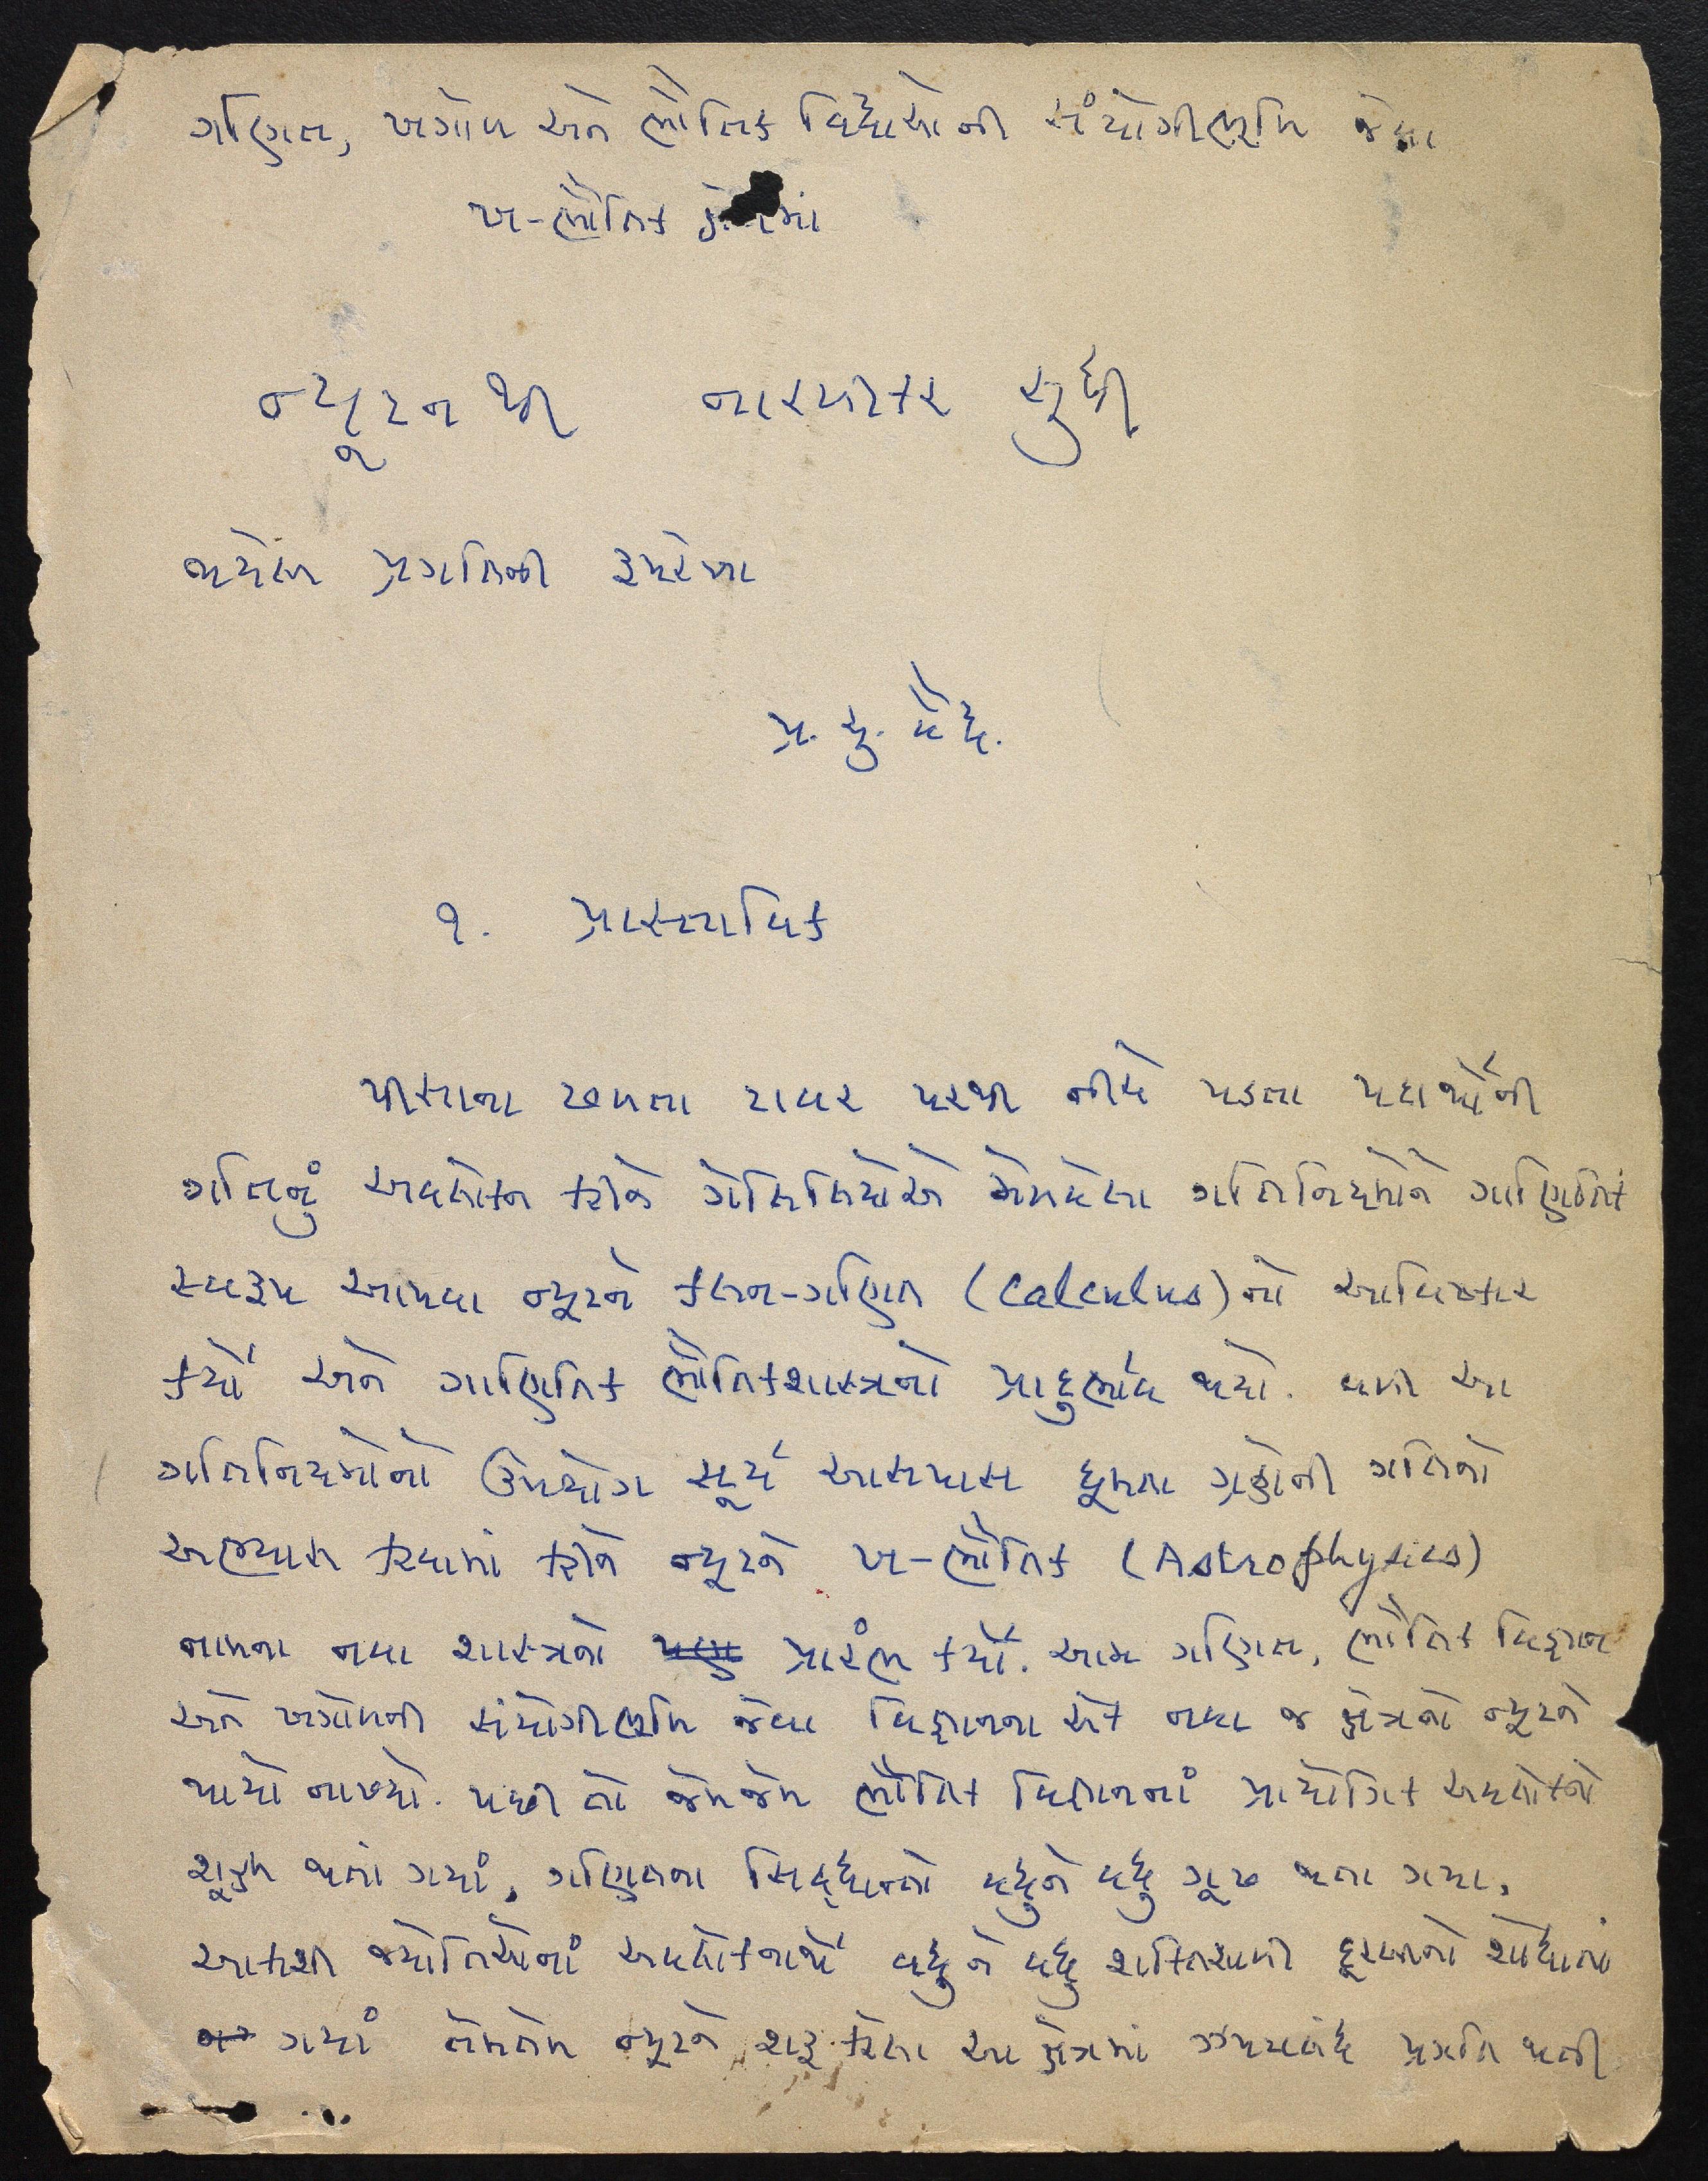 ગણિત, ખગોળ અને ભૌતિક વિદ્યાઓની સંયોગીભૂમિ જેવા
ખ-ભૌતિક ક્ષેત્રમાં
ન્યૂટનથી નારલીકર સુધી
થયેલ પ્રગતિની રૂપરેખા
પ્ર. ચુ. વૈદ્ય.
૧. પ્રાસ્તાવિક
પીસાના ઢળતા ટાવર પરથી નીચે પડતા પદાર્થોની
ગતિનું અવલોકન કરીને ગેલિલિયોએ મેળવેલા ગતિનિયમોને ગાણિતિક
સ્વરૂપ આપવા ન્યૂટને કલન-ગણિત (Calculus) નો આવિષ્કાર
કર્યો અને ગાણિતિક ભૌતિકશાસ્ત્રનો પ્રાદુર્ભાવ થયો. વળી આ
ગતિનિયમોનો ઉપયોગ સૂર્ય આસપાસ ઘૂમતા ગ્રહોની ગતિનો
અભ્યાસ કરવામાં કરીને ન્યૂટને ખ-ભૌતિક (Astrophysics)
નામના નવા શાસ્ત્રનો પણ પ્રારંભ કર્યો. આમ ગણિત, ભૌતિક વિજ્ઞાન
અને ખગોળની સંયોગીભૂમિ જેવા વિજ્ઞાનના એક નવા જ ક્ષેત્રનો ન્યૂટને
પાયો નાખ્યો. પછી તો જેમજેમ ભૌતિક વિજ્ઞાનનાં પ્રાયોગિક અવલોકનો
સૂક્ષ્મ થતાં ગયાં, ગણિતના સિદ્ધાન્તો વધુને વધુ ગૂઢ થતા ગયા,
આકાશી જ્યોતિઓનાં અવલોકનાર્થે વધુ ને વધુ શક્તિશાળી દૂરબીનો શોધાતાં
ગયાં તેમતેમ ન્યૂટને શરૂ કરેલા આ ક્ષેત્રમાં ઝડપબંધ પ્રગતિ થતી